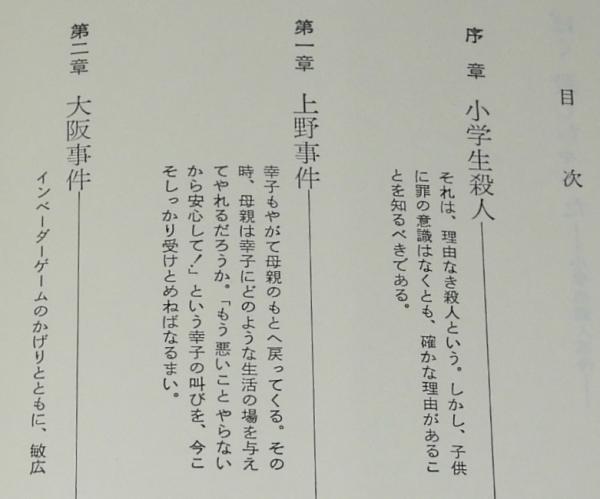 目次
序章 小学生殺人
それは、理由なき殺人という。しかし、子供
に罪の意識はなくとも、確かな理由があるこ
とを知るべきである。
第一章 上野事件
幸子もやがて母親のもとへ戻ってくる。その
時、母親は幸子にどのような生活の場を与え
てやれるだろうか。「もう悪いことやらない
から安心して!」という幸子の叫びを、今こ
そしっかり受けとめねばなるまい。
第二章 大阪事件
インベーダーゲームのかげりとともに、敏広